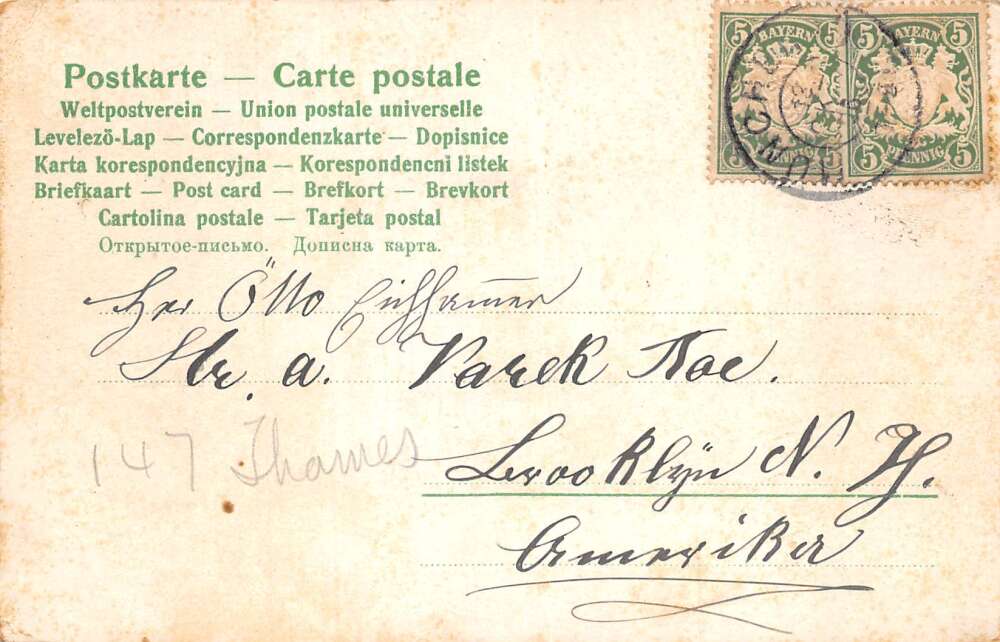 Postkarte — Carte postale
Weltpostverein — Union postale universelle
Levelezõ-Lap — Correspondenzkarte — Dopisnice
Karta korespondencyjna — Korespondencni listek
Briefkaart — Post card — Brefkort — Brevkort
Cartolina postale — Tarjeta postal
Открытое-письмо. Дописна карта.
5 BAYERN 5
5 BAYERN 5
5 PFENNIG 5
5 PFENNIG 5
Her Otto
Str. a. Varek
147 Thames
Brooklÿn N. Y.
Amerika